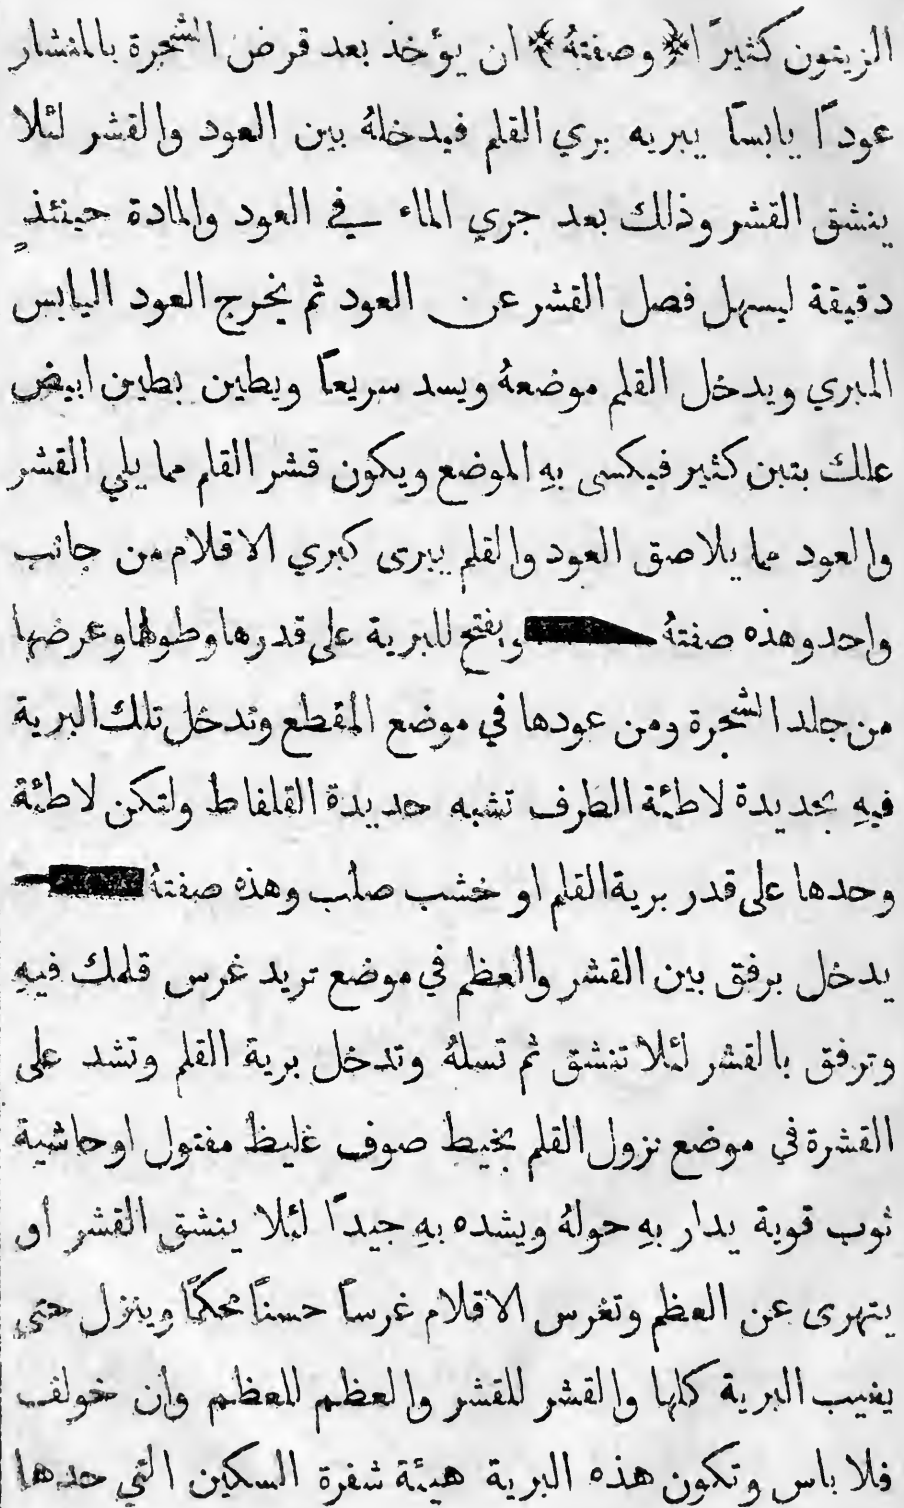 الزيتون كثيرًا ﴿ وصفتهُ ﴾ ان يؤخذ بعد قرض الشجرة بالمنشار
عودًا يابسًا يبريه بري القلم فيدخلهُ بين العود والقشر لئلا
ينشق القشر وذلك بعد جري الماء في العود والمادة حينئذٍ
دقيقة ليسهل فصل القشر عن العود ثم يخرج العود اليابس
المبري ويدخل القلم موضعهُ ويسد سريعًا ويطين بطين ابيض
علك بتبن كثير فيكسى بهِ الموضع ويكون قشر القلم مما يلي القشر
والعود مما يلاصق العود والقلم يبرى كبري الاقلام من جانب
واحد وهذه صفتهُ ويفتح للبرية على قدرها وطولها وعرضها
من جلد الشجرة ومن عودها في موضع المقطع وتدخل تلك البرية
فيهِ بحديدة لاطئة الطرف تشبه حديدة القلفاط ولتكن لاطئة
وحدها على قدر برية القلم او خشب صلب وهذه صفتهُ
يدخل برفق بين القشر والعظم في موضع تريد غرس قلمك فيهِ
وترفق بالقشر لئلا تنشق ثم تسلهُ وتدخل برية القلم وتشد على
القشرة في موضع نزول القلم بخيط صوف غليظ مفتول او حاشية
ثوب قوية يدار بهِ حولهُ ويشده بهِ جيدًا لئلا ينشق القشر أو
يتهرى عن العظم وتغرس الاقلام غرسًا حسنًا محكمًا وينزل حتى
يغيب البرية كلها والقشر للقشر والعظم للعظم وان خولف
فلا باس وتكون هذه البرية هيئة شفرة السكين التي حدها